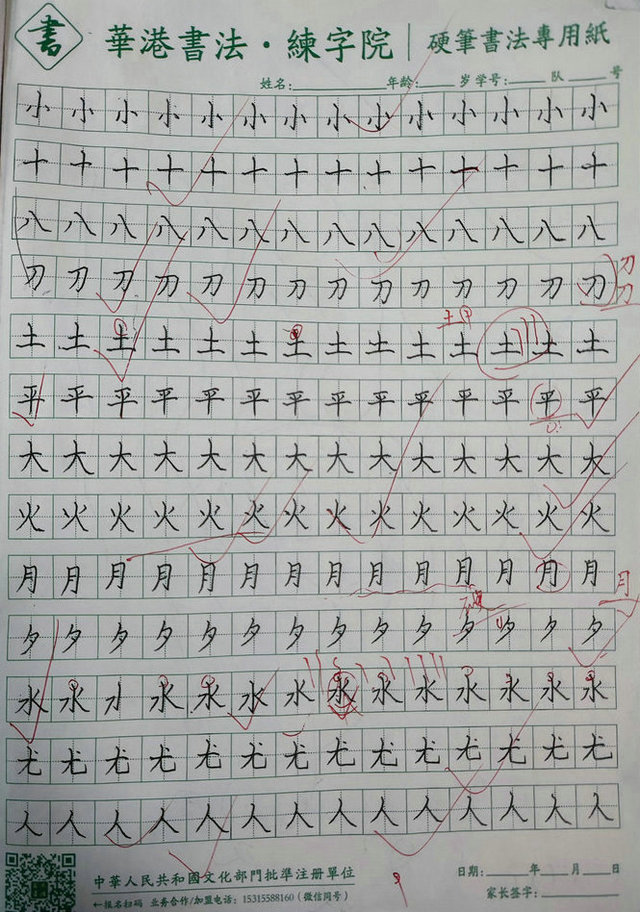 書 華港書法·練字院 硬筆書法專用紙
姓名:________年龄:____岁 学号:____队____号
小 小 小 小 小 小 小 小 小 小 小 小 小 小
十 十 十 十 十 十 十 十 十 十 十 十 十 十
八 八 八 八 八 八 八 八 八 八 八 八 八 八
刃 刀 刃 刀 刀 刀 刀 刀 刀 刀 刀 刀 刀 刀 刀
刀
土 土 土 土 土 土 土 土 土 土 土 土 土 土
平 平 平 平 平 平 平 平 平 平 平 平 平 平
大 大 大 大 大 大 大 大 大 大 大 大 大 大
火 火 火 火 火 火 火 火 火 火 火 火 火 火
月 月 月 月 月 月 月 月 月 月 月 月 月 月 月
夕 夕 夕 夕 夕 夕 夕 夕 夕 夕 夕 夕 夕 夕
水 水 水 水 水 水 水 水 水 水 水 水 水 水
尤 尤 尤 尤 尤 尤 尤 尤 尤 尤 尤 尤 尤 尤
人 人 人 人 人 人 人 人 人 人 人 人 人 人
中華人民共和國文化部門批準注册單位
←报名扫码 业务合作/加盟电话：15315588160（微信同号）
日期:____年____月____日
家长签字:________